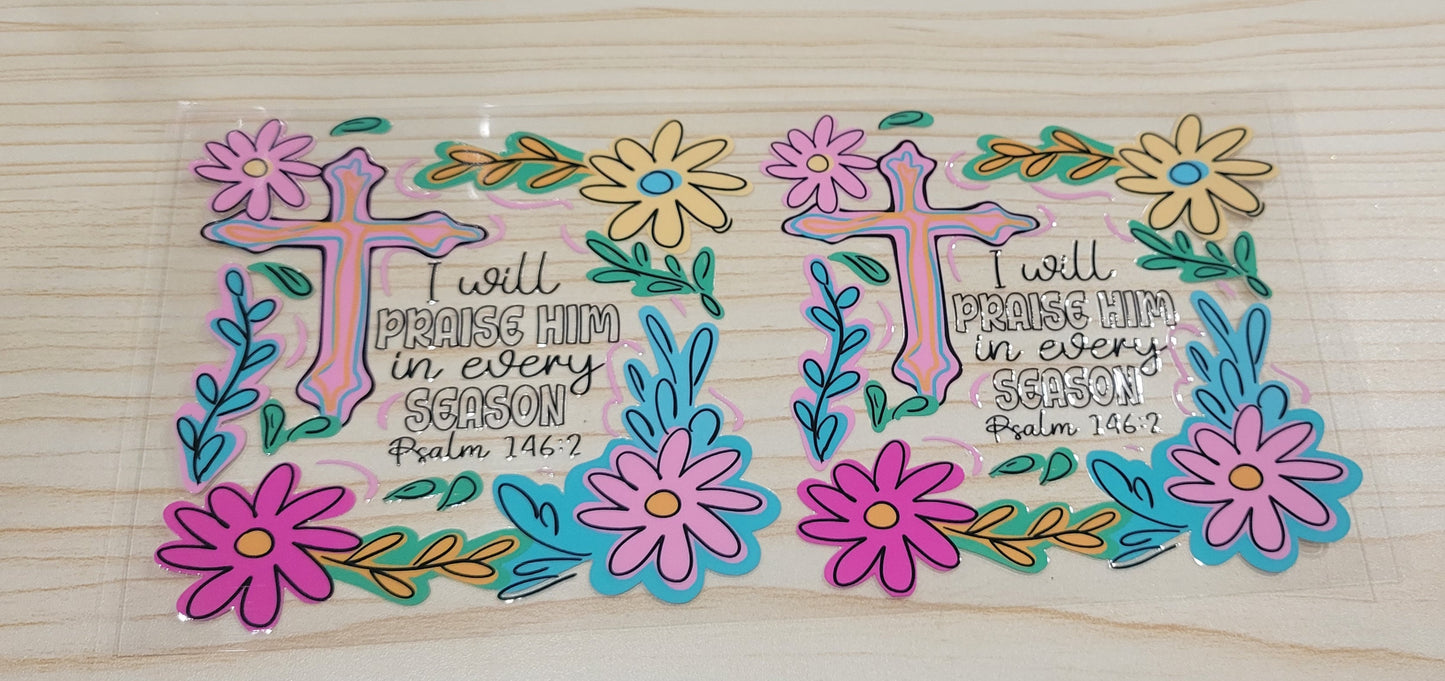 I will
PRAISE HIM
in every
SEASON
Psalm 146:2
I will
PRAISE HIM
in every
SEASON
Psalm 146:2